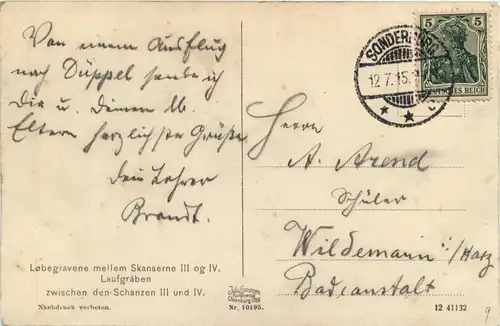 Von einem Ausflug
nach Düppel sende ich
Dir u. Deinen lb.
Eltern herzlichste Grüße
Dein Lehrer
Brandt.
Løbegravene mellem Skanserne III og IV.
Laufgräben
zwischen den Schanzen III und IV.
Nachdruck verboten.
Nr. 10195.
SONDERBURG
12.7.15.
5 5
DEUTSCHES REICH
Herrn
A. Arend
Schüler
Wildemann/Harz
Badeanstalt
12 41132
9